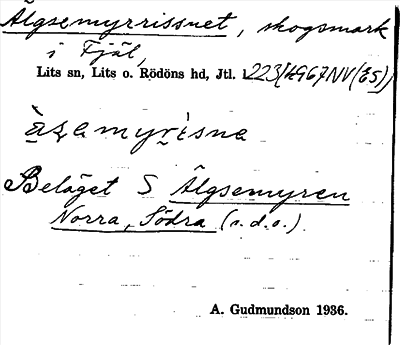 Älgsemyrrissnet, skogsmark
i Fjäl,
Lits sn, Lits o. Rödöns hd, Jtl.
Beläget S Älgsemyren
Norra, Södra (s.d.o.).
A. Gudmundson 1936.